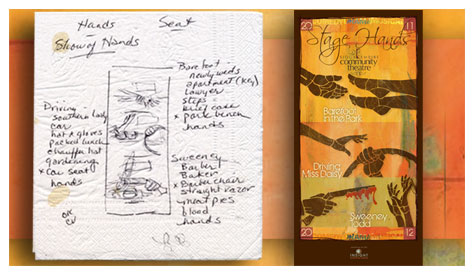 Hands
Seat
Show of Hands
Barefoot
newlyweds
apartment (key)
lawyer
steps
brief case
x park bench
hands
Driving
southern lady
car
hat & gloves
packed lunch
chauffer hat
gardening
x car seat
hands
Sweeney
Barber
Baker
x Barber chair
straight razor
meat pies
blood
hands
20
11
Stage Hands
community
theatre
Barefoot
in the Park
Driving
Miss Daisy
Sweeney
Todd
20
12